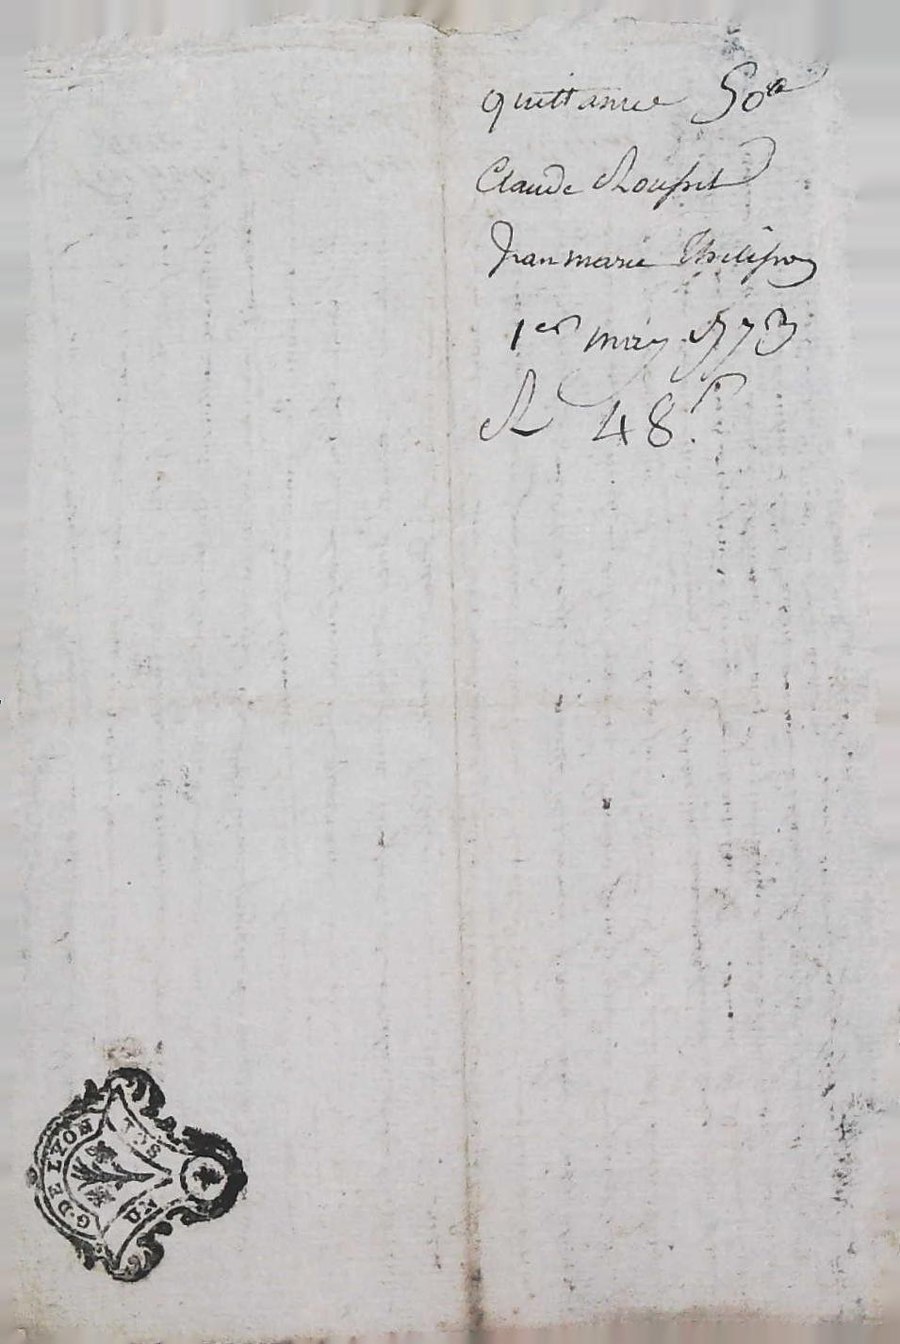 quittance 50#
Claude Rousset
Jean marie Philipon
1er may 1773
R 48.s
G. DE LYON